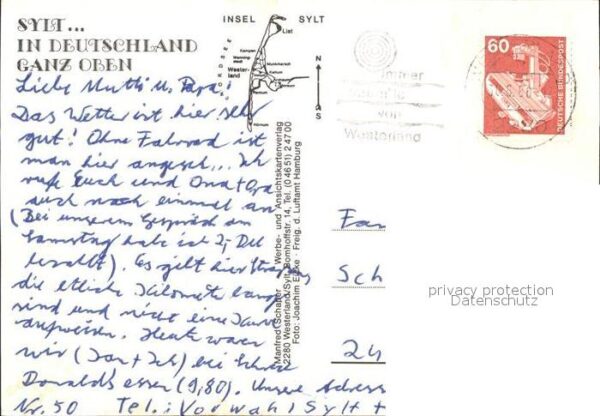 SYLT...
IN DEUTSCHLAND
GANZ OBEN
INSEL SYLT
NORDSEE
List
Kampen
Westerland
N
S
60
DEUTSCHE BUNDESPOST
immer
von
Westerland
Liebe Mutti u. Papa!
Das Wetter ist hier sehr
gut! Ohne Fahrrad ist
man hier angesch... Ich
rufe Euch und Oma + Opa
auch noch einmal an
(Bei unserem Gespräch am
Samstag habe ich 2,- DM
bezahlt). Es gibt hier Straßen
die etliche Kilometer lang
sind und nicht eine Kurve
aufweisen. Heute waren
wir (Jan + Ich) bei Mc
Donalds essen (9,80). Unsere Adress
Nr. 50 Tel.: Vorwahl Sylt +
Manfred Schaper · Werbe- und Ansichtskartenverlag
2280 Westerland/Sylt, Bomhoffstr. 14, Tel. (0 46 51) 2 47 00
Foto: Joachim Eicke · Freig. d. Luftamt Hamburg
Fam
Sch
24
privacy protection
Datenschutz